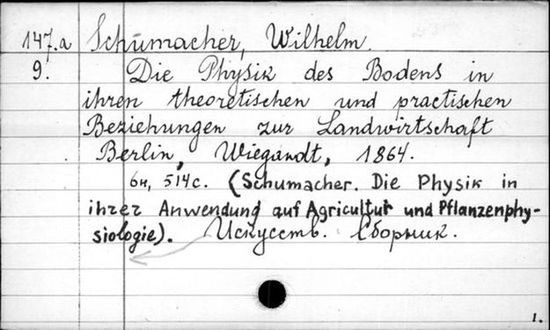 147.a Schumacher, Wilhelm.
9. Die Physik des Bodens in
ihren theoretischen und practischen
Beziehungen zur Landwirtschaft
Berlin, Wiegandt, 1864.
6н, 514с. (Schumacher. Die Physik in
ihrer Anwendung auf Agricultur und Pflanzenphy-
siologie). Искусств. Сборник.
1.